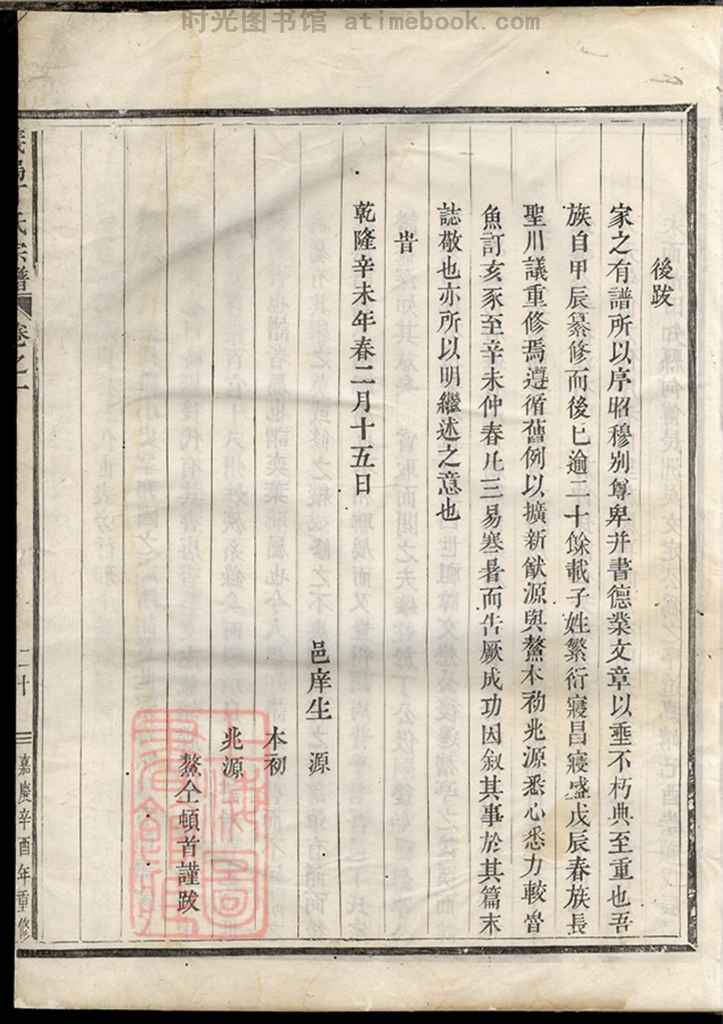 时光图书馆 atimebook.com
後跋
家之有譜所以序昭穆别尊卑并書德業文章以垂不朽典至重也吾
族自甲辰纂修而後已逾二十餘載子姓繁衍寖昌寖盛戊辰春族長
聖川議重修焉遵循舊例以擴新猷源與鰲本初兆源悉心悉力較魯
魚訂亥豕至辛未仲春凡三易寒暑而告厥成功因叙其事於其篇末
誌敬也亦所以明繼述之意也
旹
乾隆辛未年春二月十五日
邑庠生 源
本初
兆源
鰲仝頓首謹跋
氏宗譜 卷之 二十 嘉慶辛酉年重修